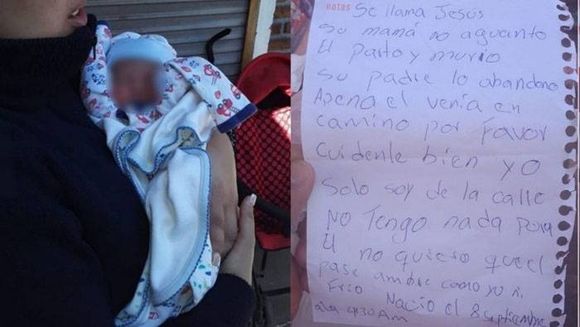 notas
Se llama Jesús
Su mamá no aguanto
El parto y murio
Su padre lo abandono
Apena el venía en
camino por favor
Cuidenle bien yo
Solo soy de la calle
No Tengo nada para
El no quiero que el
pase ambre como yo ni
Frio Nacio el 8 septiembre
a la 9:30 Am